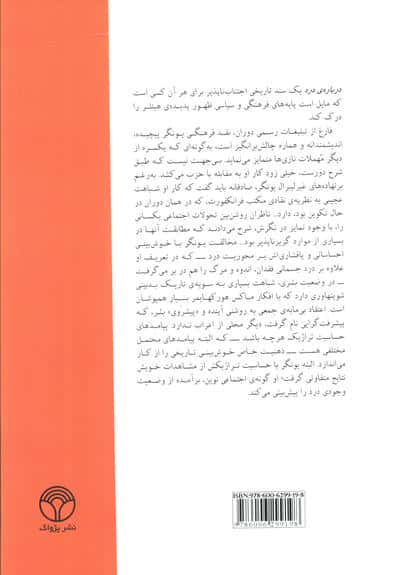 درباره‌ی درد یک سند تاریخی اجتناب‌ناپذیر برای هر آن کسی است
که مایل است پایه‌های فرهنگی و سیاسی ظهور پدیده‌ی هیتلر را
درک کند.
فارغ از تبلیغات رسمی دوران، نقد فرهنگی یونگر پیچیده،
اندیشمندانه و هماره چالش‌برانگیز است، به‌گونه‌ای که یکسره از
دیگر مُهملات نازی‌ها متمایز می‌نماید. بی‌جهت نیست که طبق
شرح دورست، خیلی زود کار او به مقابله با حزب می‌کشد. به‌رغم
برنهاده‌های غیرلیبرال یونگر، صادقانه باید گفت که کار او شباهت
عجیبی به نظریه‌ی نقادی مکتب فرانکفورت، که در همان دوران در
حال تکوین بود، دارد... ناظران روشن‌بین تحولات اجتماعی یکسانی
را، با وجود تمایز در نگرش، شرح می‌دادند که مطابقت آنها در
بسیاری از موارد گریزناپذیر بود... مخالفت یونگر با خوش‌بینی
احساساتی و پافشاری‌اش بر محوریت درد ـــ که در تعریف او
علاوه بر درد جسمانی فقدان، اندوه و مرگ را هم در بر می‌گرفت
ـــ در وضعیت بشری، شباهت بسیاری به سویه‌ی تاریک بدبینی
شوپنهاوری دارد که با افکار ماکس هورکهایمر بسیار همپوشان
است. اعتقاد بی‌مایه‌ی جمعی به روشنی آینده و «پیشروی» بشر، که
پیشرفت‌گرایی نام گرفت، دیگر محلی از اعراب ندارد. پیامدهای
حساسیت تراژیک هرچه باشد ـــ که البته پیامدهای محتمل
مختلفی هست ـــ ذهنیت خاص خوش‌بینی تاریخی را از کار
می‌اندازد. البته یونگر با حساسیت تراژیکش از مشاهدات خویش
نتایج متفاوتی گرفت؛ او گونه‌ی اجتماعی نوین، برآمده از وضعیت
وجودی درد را پیش‌بینی می‌کند.
ISBN:978-600-6299-19-8
9786006299198
نشر پژواک